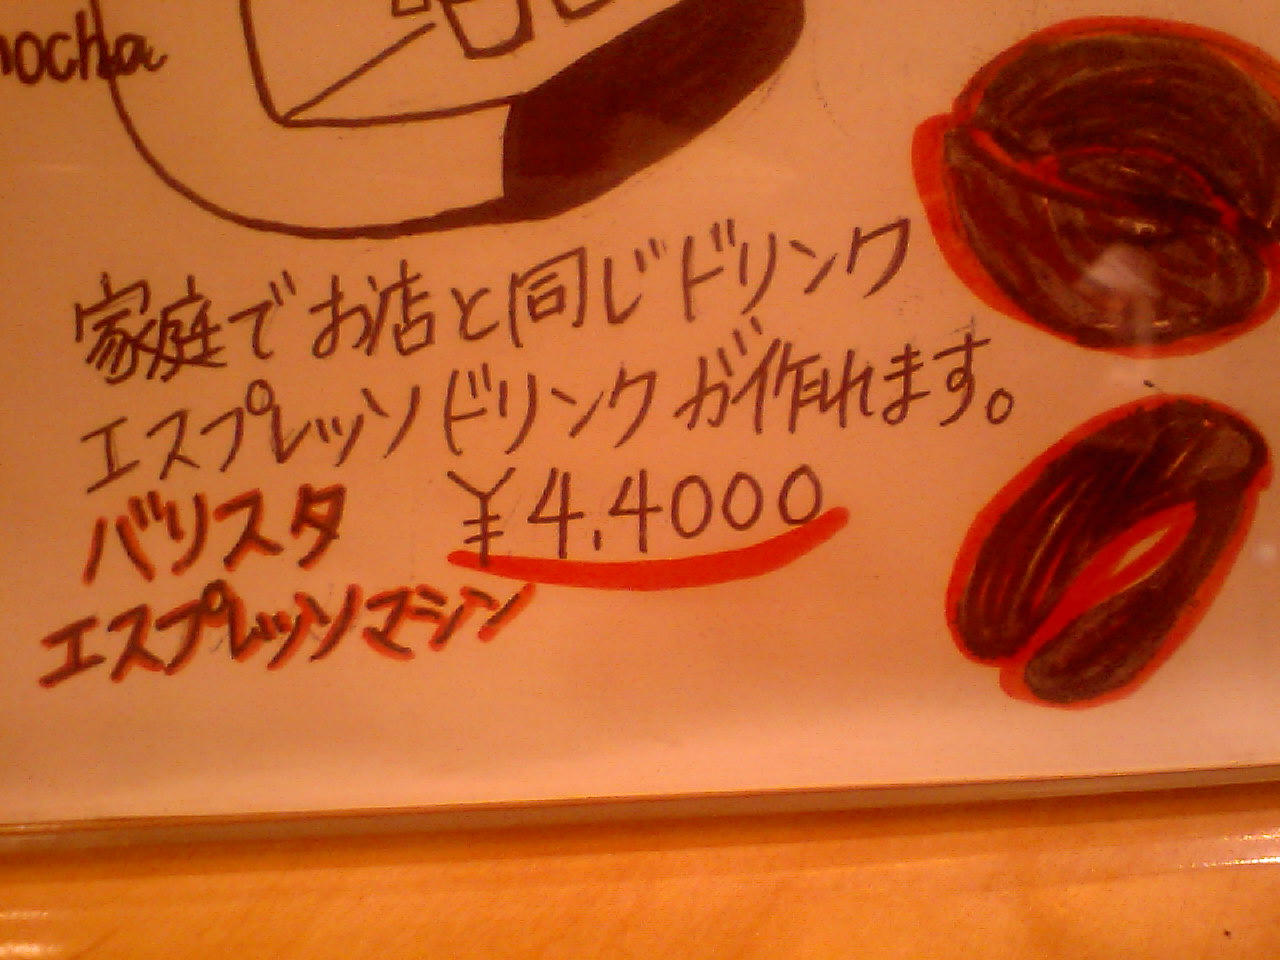 mocha
家庭でお店と同じドリンク
エスプレッソドリンクが作れます。
バリスタ ¥4.4000
エスプレッソマシン